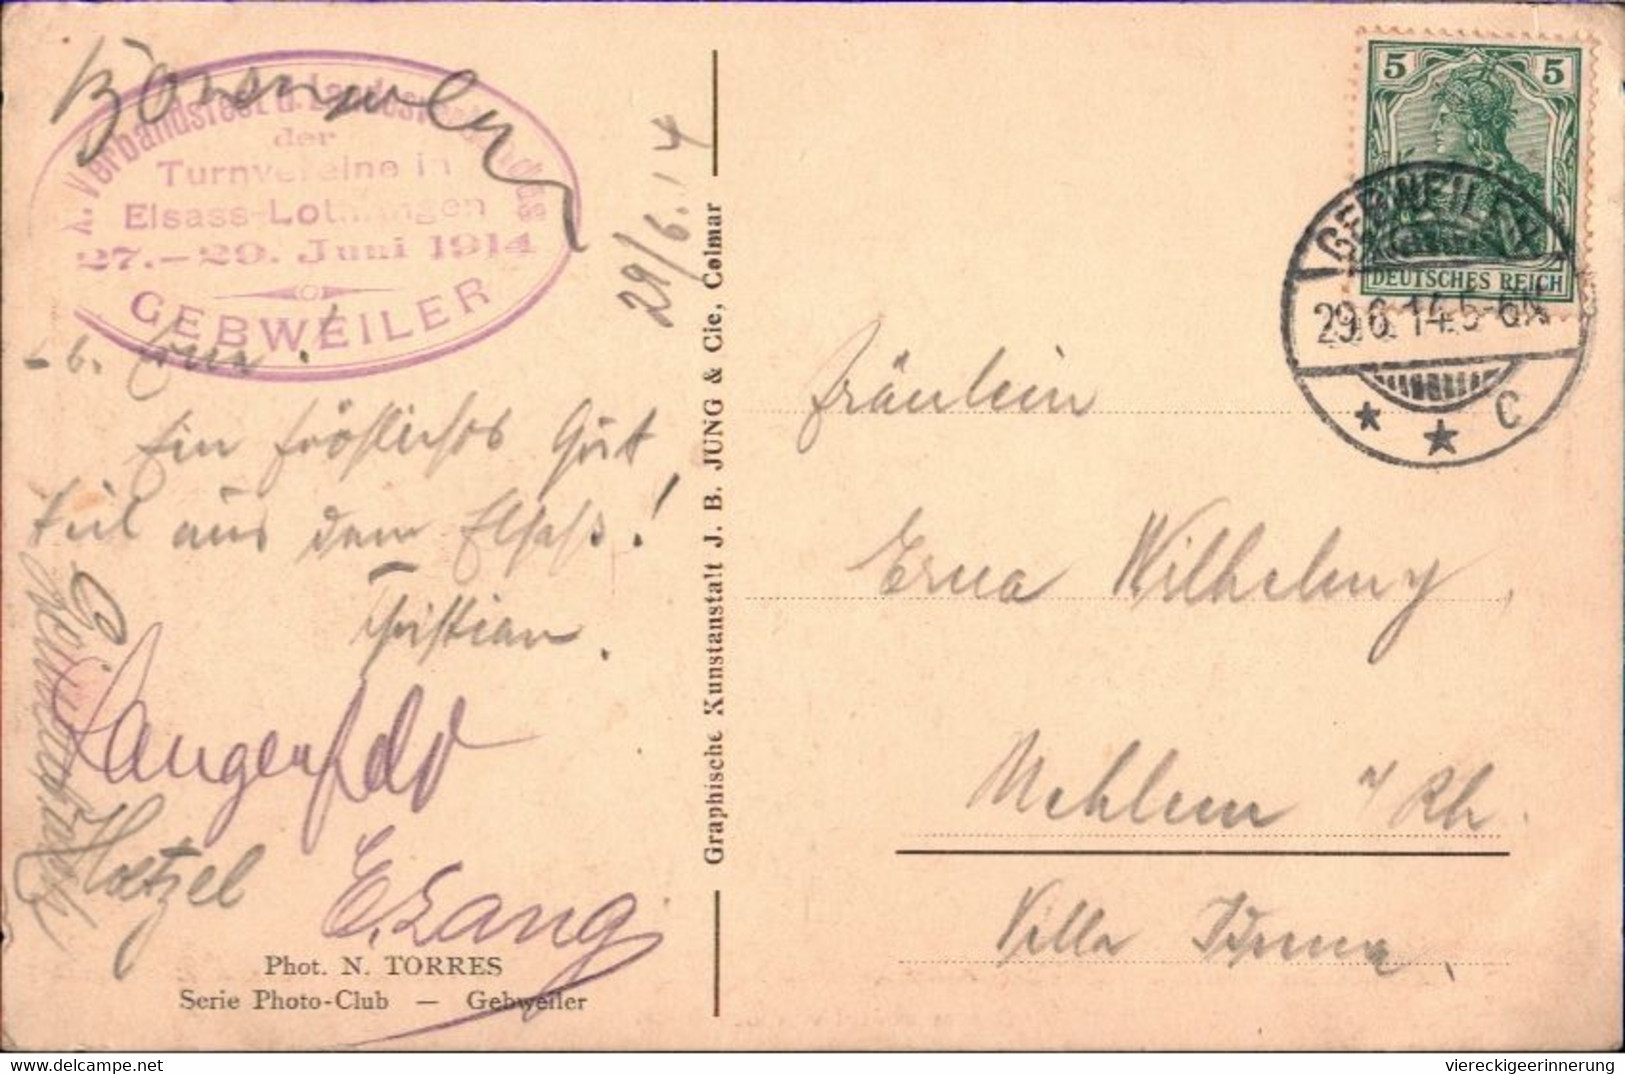 X. Verbandsfest d. Landesverbandes
der
Turnvereine in
Elsass-Lothringen
27.–29. Juni 1914
GEBWEILER
29/6.14
Ein fröhliches Gut
Heil aus dem Elsaß!
Christian.
Langenfeld
Hoetzel
E. Lang
Phot. N. TORRES
Serie Photo-Club — Gebweiler
Graphische Kunstanstalt J. B. JUNG & Cie, Colmar
5 5
DEUTSCHES REICH
GEBWEILER
29.6.14.5-6N
* * C
Fräulein
Erna Wilhelmy,
Mehlem a/Rh.
Villa
viereckigeerinnerung